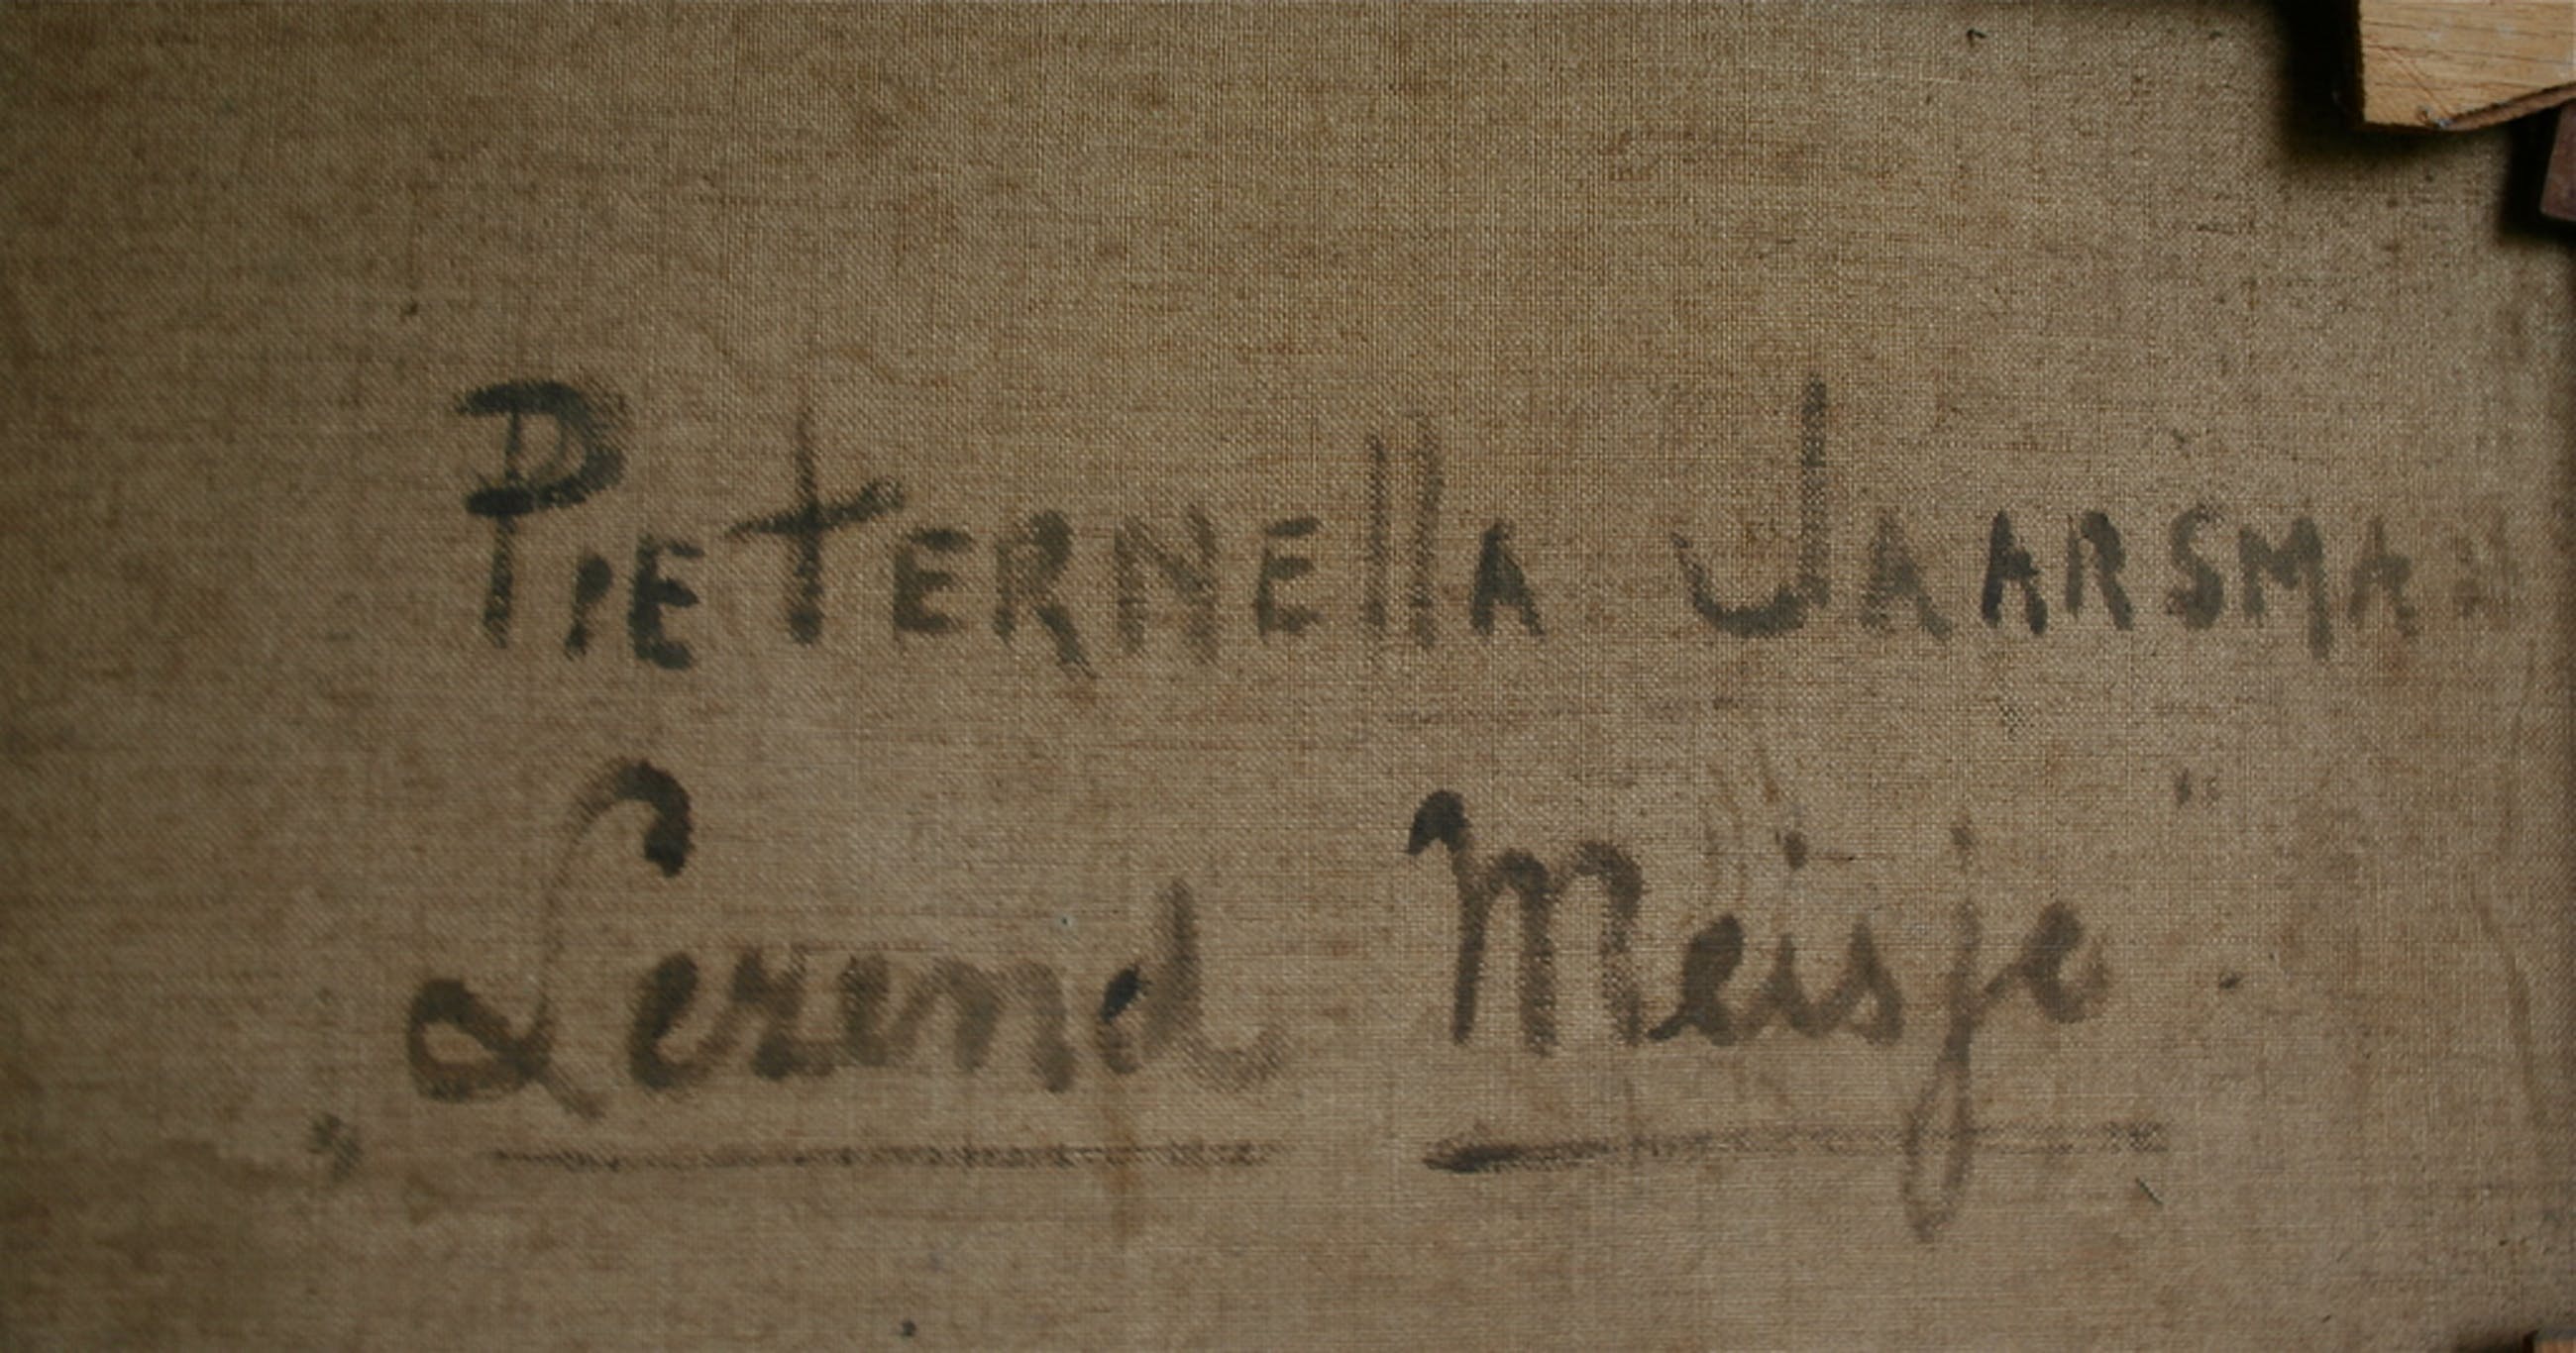 PieterNella Jaarsma
Lezend Meisje